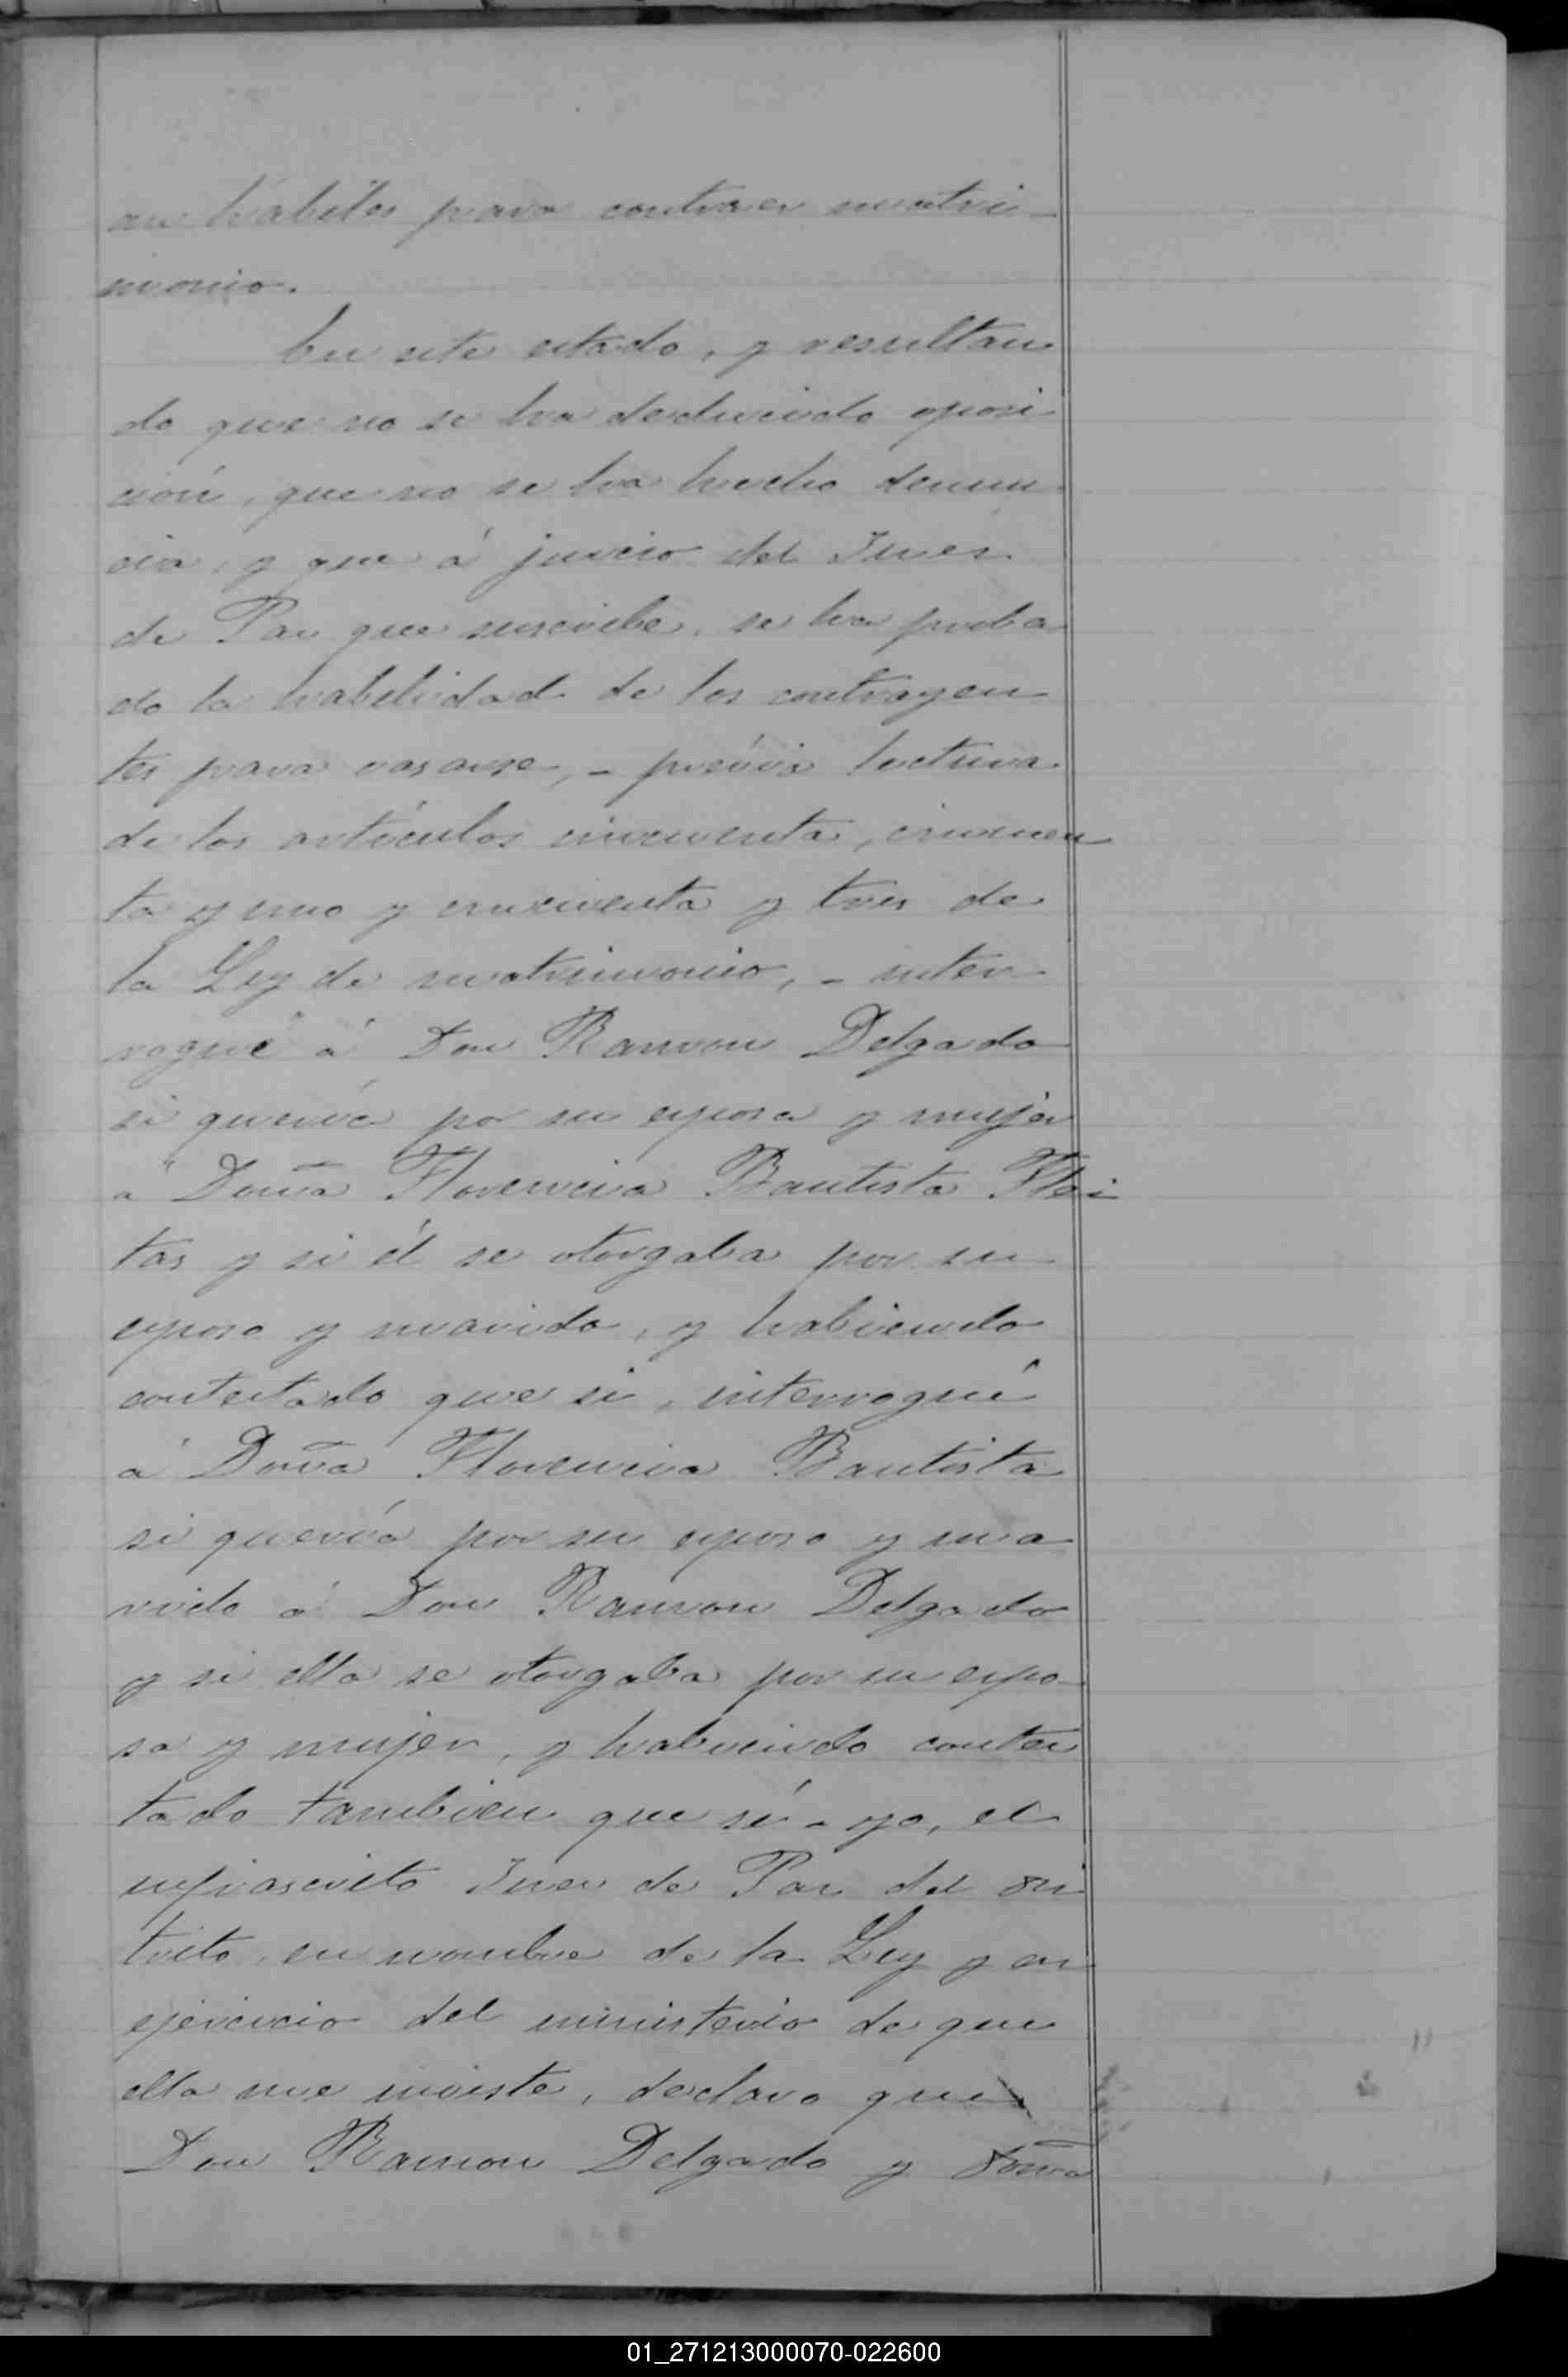 an habiles para contraer matri-
monio.
En este estado, y resultan
do que no se ha deducido oposi
ción, que no se ha hecho denun
cia, y que á juicio del Juez
de Paz que suscribe, se ha proba
do la habilidad de los contrayen
tes para casarse, - prévia lectura
de los artículos cincuenta, cincuen
ta y uno y cincuenta y tres de
la Ley de matrimonio, - inter
rogué á Don Ramon Delgado
si quería por su esposa y mujer
a Doña Florencia Bautista Flei
tas y si él se otorgaba por su
esposo y marido, y habiendo
contestado que si, interrogué
á Doña Florencia Bautista
si quería por su esposo y ma
rido á Don Ramon Delgado
y si ella se otorgaba por su espo-
sa y mujer, y habiendo contes
tado tambien que sí - yo, el
infrascrito Juez de Paz del dis
trito, en nombre de la Ley y en
ejercicio del ministerio de que
ella me inviste, declaro que
Don Ramon Delgado y Doña
01_271213000070-022600